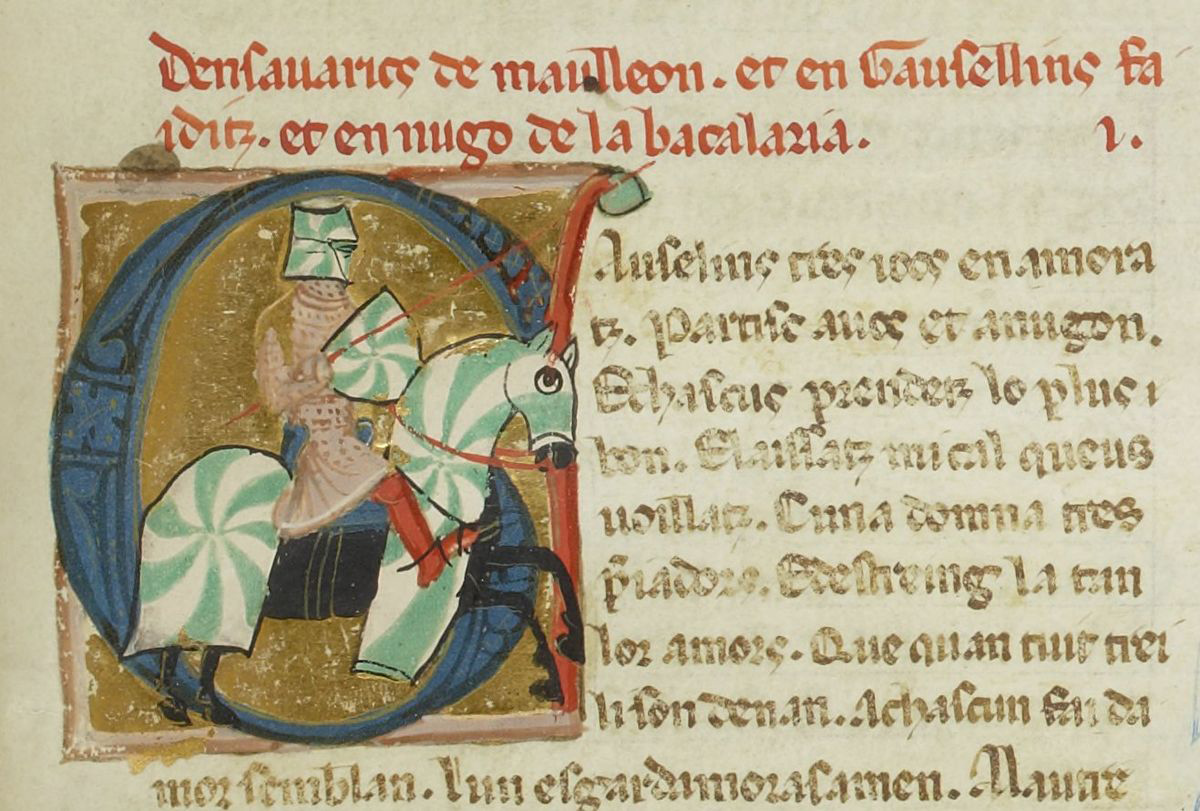 Densauarics de maulleon. et en Gausellins fa
iditz. et en nugo de la bacalaria. I.
Auselins tres iocs en amora
tz. Partisc auos et anugon.
Echascus prendetz lo plus
bon. Elaissatz mi cal queus
uoillatz. Cuna domna tres
p̃iadors. Edestreing la tan
lor amors. Que quan tuit trei
li son denan. Achascun fai da
mor semblan. Lun esgardamorasamen. Lautre